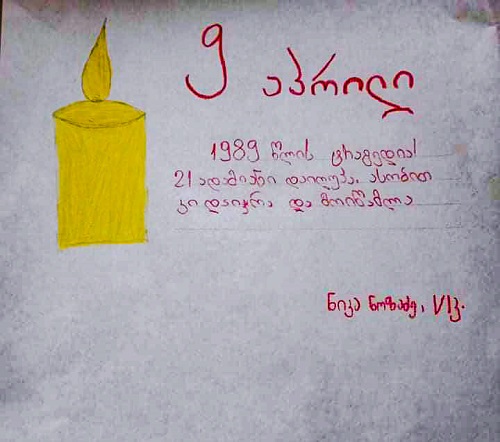 9 აპრილი
1989 წლის ტრაგედია!
21 ადამიანი დაიღუპა. ასობით
კი დაიჭრა და მოიწამლა
ნიკა ნოზაძე, VIკ.